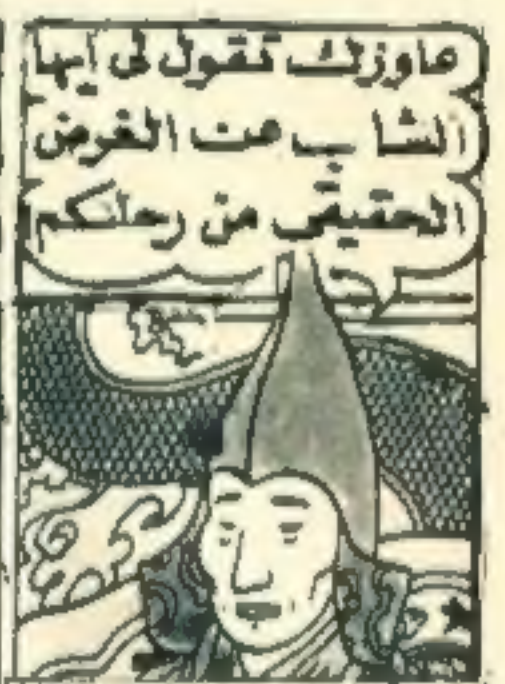 عاوزك تقول لى أيها
الشاب عن الغرض
الحقيقى من رحلتكم